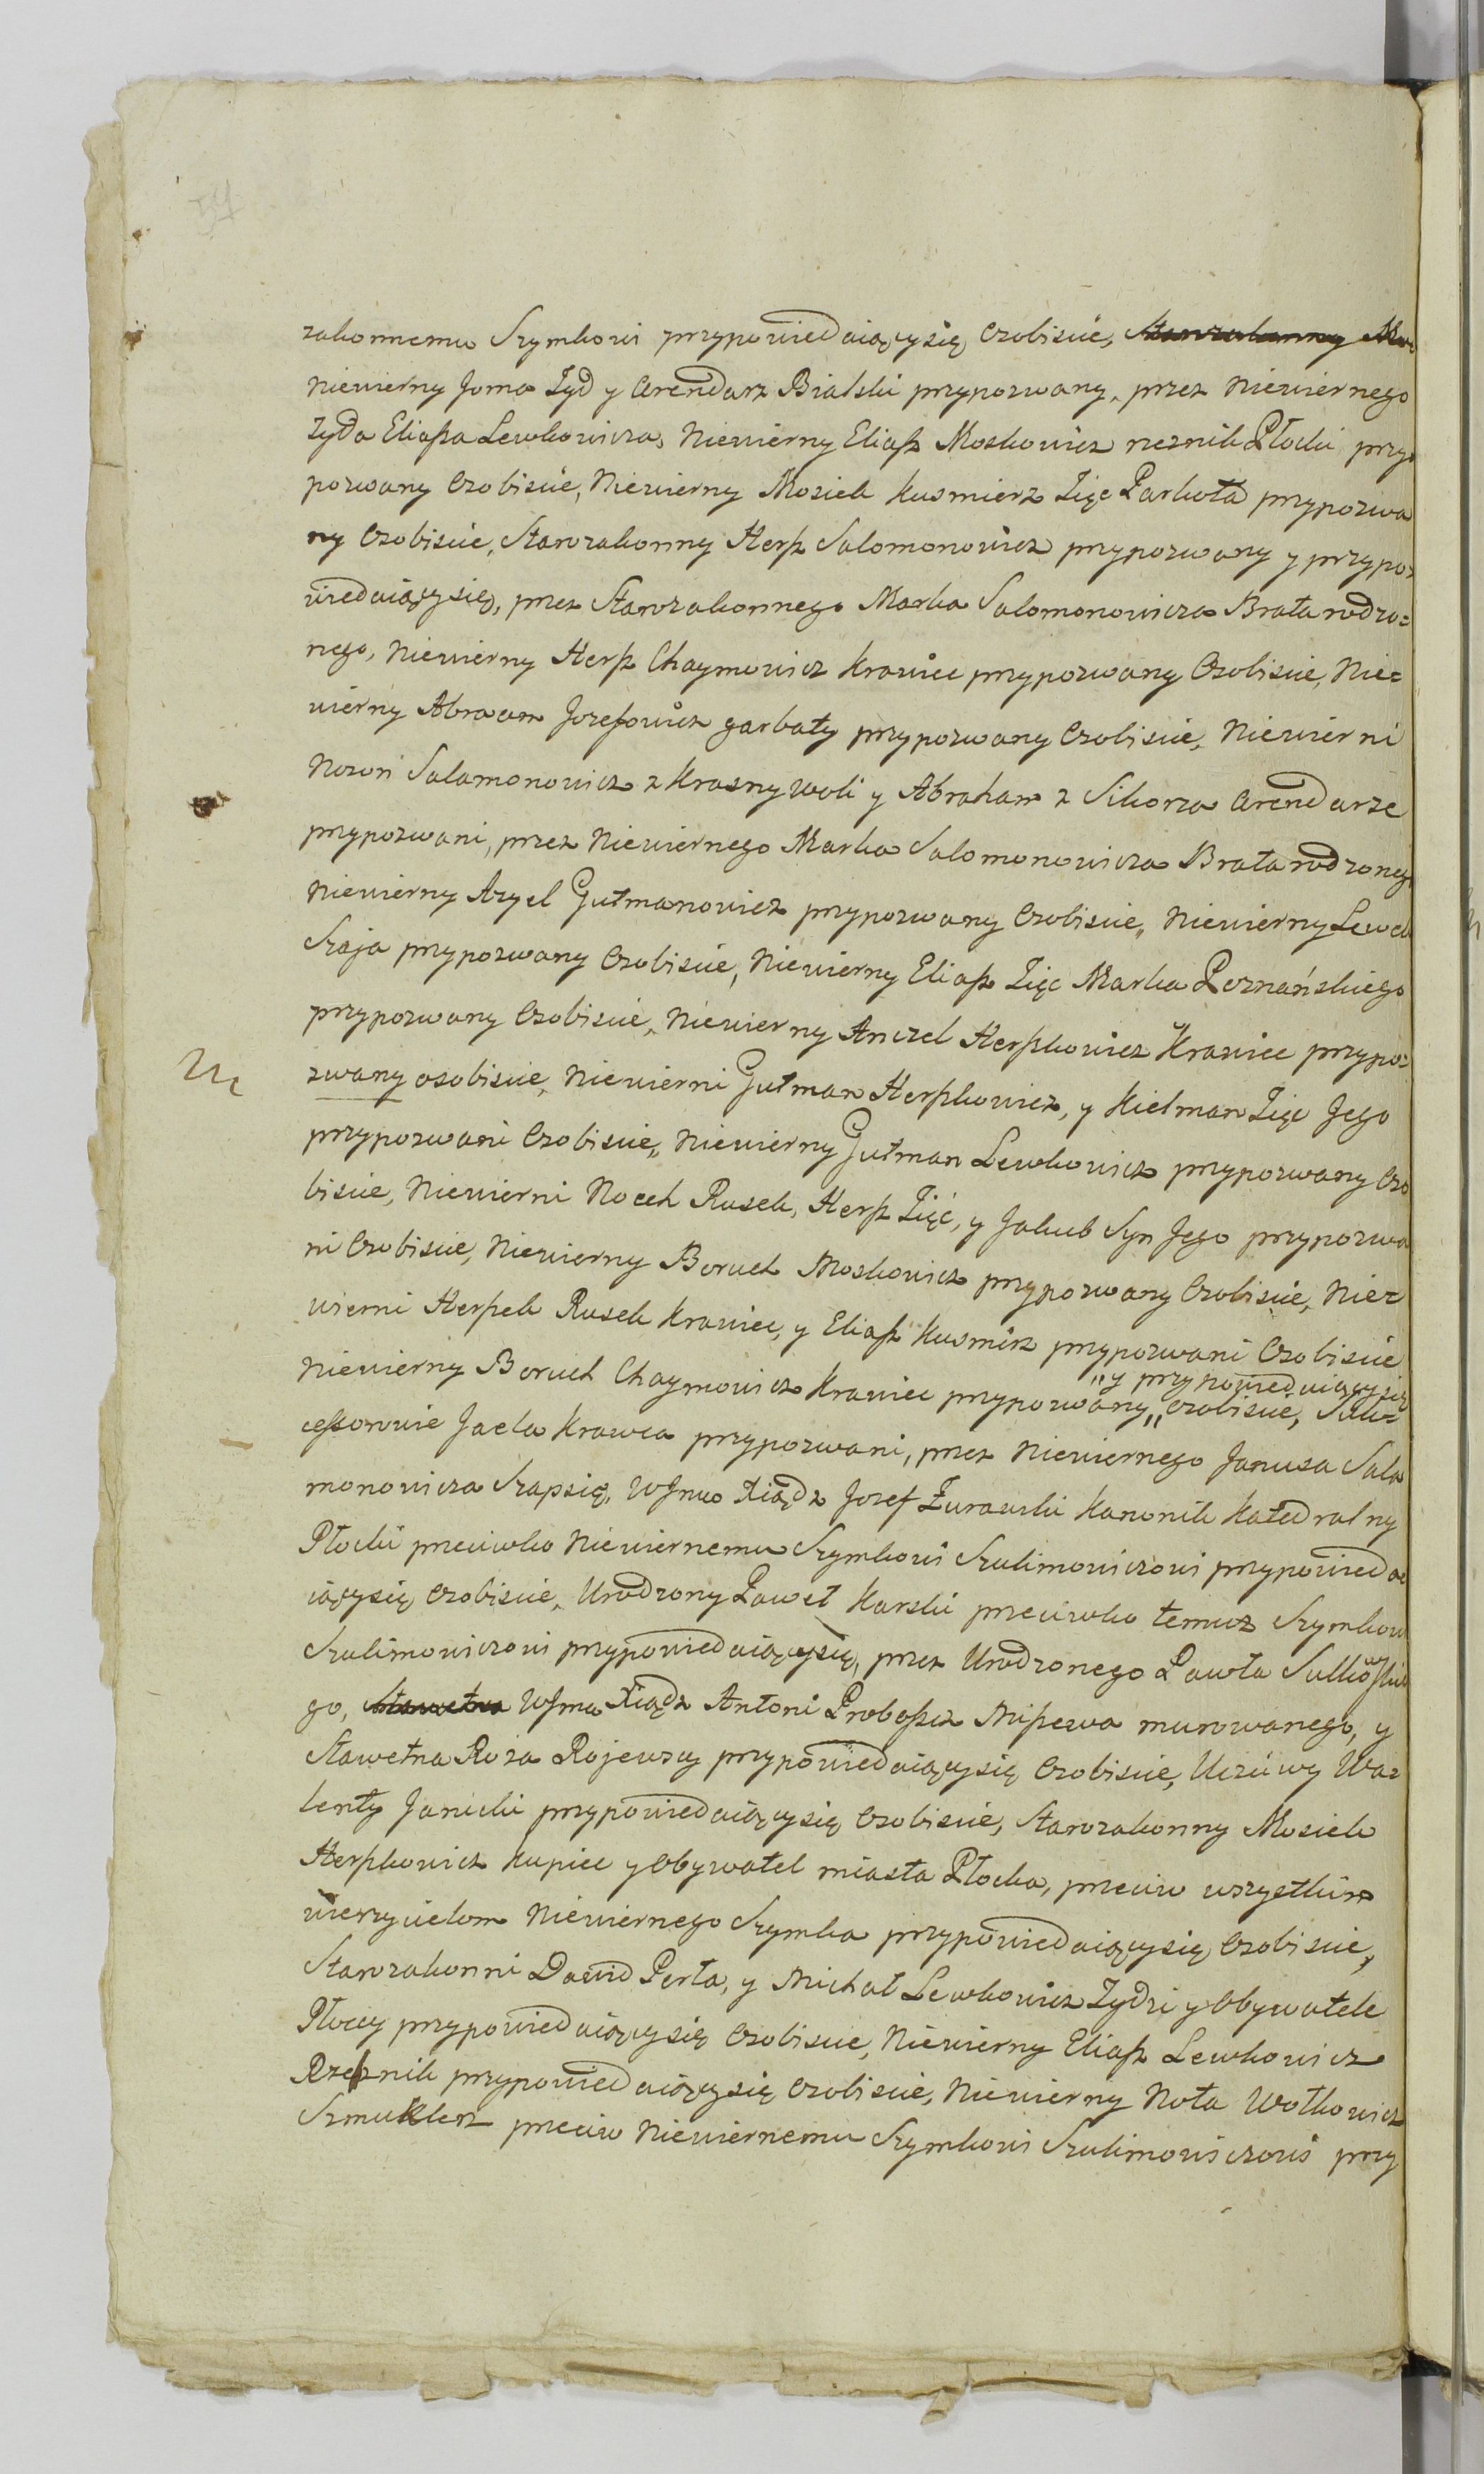 zakonnemu Szymkowi przypowiedaiącysię Osobiście, Starozakonny
Niewierny Joma Zyd y Arendarz Bialski przypozwany, przez Niewiernego
Zyda Eliaßa Lewkowicza, Niewierny Eliaß Moskowicz rzeznik Płocki przy
pozwany Osobiście, Niewierny Mosiek Kusmierz Zięc Parkoła przypozwa
ny Osobiście, Starozakonny Herß Salomonowicz przypozwany y przypo=
wiedaiącysię, przez Starozakonnego Marka Salomonowicza Brata rodzo=
nego, Niewierny Herß Chaymowicz Krawiec przypozwany Osobiście, Nie=
wierny Abraam Jozefowicz garbaty przypozwany Osobiście, Niewierni
Nozon Salamonowicz z Krasny woli y Abraham z Sikorza Arendarze
przypozwani, przez Niewiernego Marka Salomonowicza Brata rodzoneg
Niewierny Azyel Gutmanowicz przypozwany Osobiście, Niewierny Lewek
Szaja przypozwany Osobiście, Niewierny Eliaß Zięc Marka Poznańskiego
przypozwany Osobiście, Niewierny Anczel Herßkowicz Krawiec przypo=
zwany osobiście, Niewierni Gutman Herßkowicz, y Kielman Zięc Jego
przypozwani Osobiście, Niewierny Gutman Lewkowicz przypozwany Oso
biście, Niewierni Noech Rusek, Herß Zięć, y Jakub Syn Jego przypozwa
ni Osobiście, Niewierny Boruch Moskowicz przypozwany Osobiście, Nie=
wierni Herßek Rusek Krawiec, y Eliaß Kusmirz przypozwani Osobiście
"y przypowiedaiącysię
Niewierny Boruch Chaymowicz Krawiec przypozwany" Osobiście, Suk=
ceßorowie Jaela Krawca przypozwani, przez Niewiernego Janusa Sala
monowicza Szapsię, WJmc Xiądz Jozef Zurawski Kanonik Katedralny
Płocki przeciwko Niewiernemu Szymkowi Szulimowiczowi przypowieda
iącysię Osobiście, Urodzony Paweł Karski przeciwko temuz Szymkow
Szulimowiczowi przypowiedaiącysię, przez Urodzonego Pawła Sulkowskie
go, Sławetna WJmc Xiądz Antoni Proboßcz Mißewa murowanego, y
Sławetna Roza Rojewszy przypowiedaiącysię Osobiście, Uczciwy Wa=
lenty Janicki przypowiedaiącysię Osobiście, Starozakonny Mosiek
Herßkowicz Kupiec y Obywatel miasta Płocka, przeciw wszystkim
wierzycielom Niewiernego Szymka przypowiedaiącysię Osobiście,
Starozakonni Dawid Perła, y Michał Lewkowicz Zydzi y Obywatele
Płoccy przypowiedaiącysię Osobiście, Niewierny Eliaß Lewkowicz
Rzeznik przypowiedaiącysię Osobiście, Niewierny Nota Wolkowicz
Szmuklerz przeciw Niewiernemu Szymkowi Szulimowiczowi przy